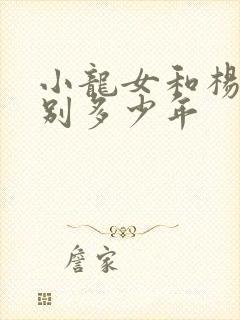 小龍女和楊
別多少年
詹家